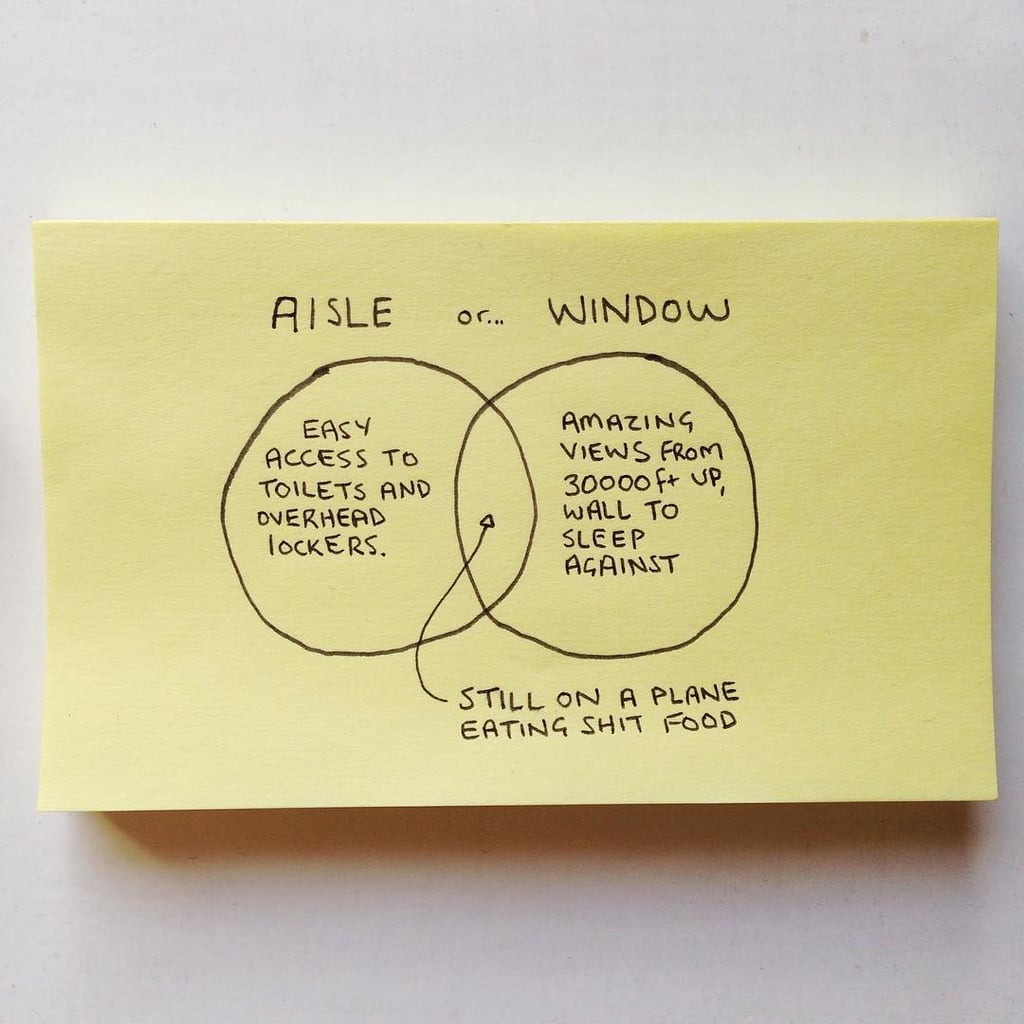 AISLE or... WINDOW
EASY
ACCESS TO
TOILETS AND
OVERHEAD
lOCKERS.
AMAZING
VIEWS FROM
30000ft UP,
WALL TO
SLEEP
AGAINST
STILL ON A PLANE
EATING SHIT FOOD